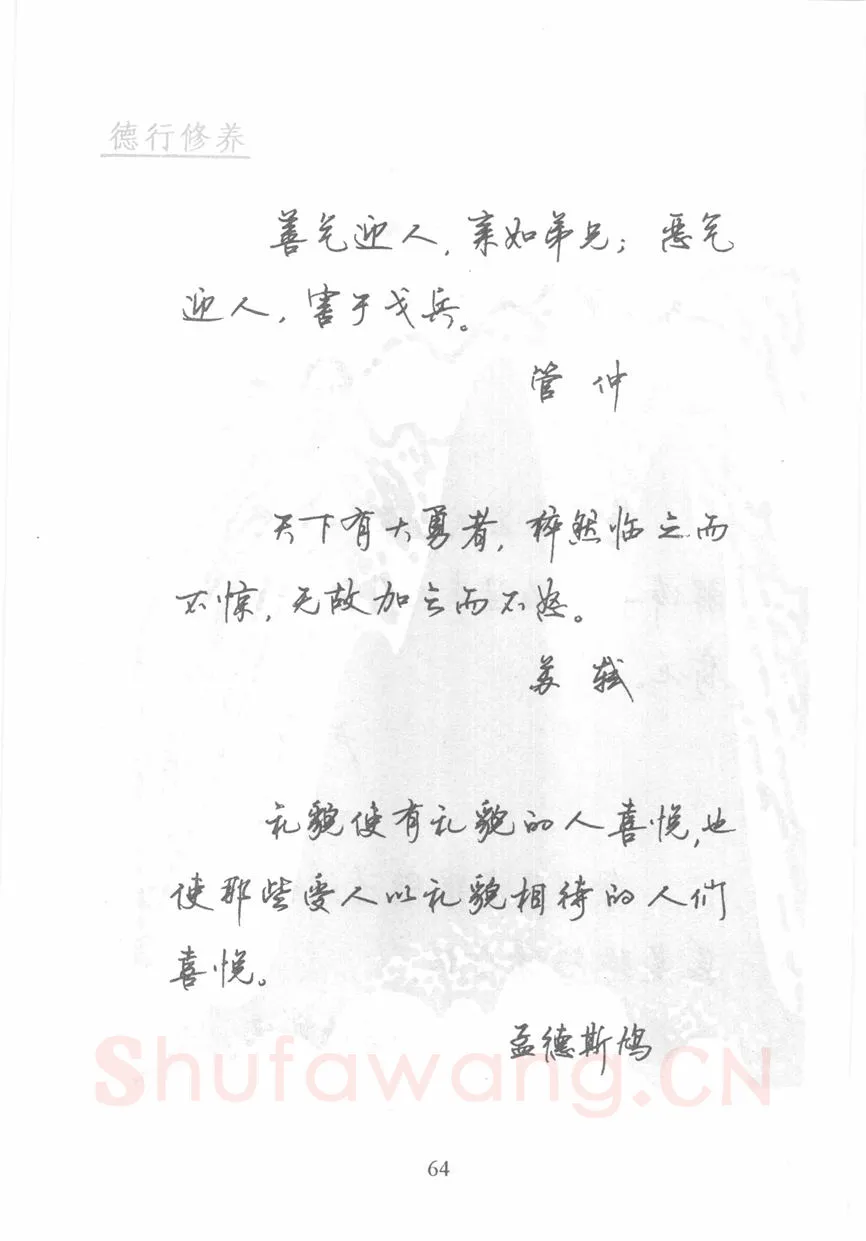 德行修养
善气迎人，亲如弟兄；恶气
迎人，害于戈兵。
管仲
天下有大勇者，猝然临之而
不惊，无故加之而不怒。
苏轼
礼貌使有礼貌的人喜悦，也
使那些受人以礼貌相待的人们
喜悦。
孟德斯鸠
Shufawang.CN
64